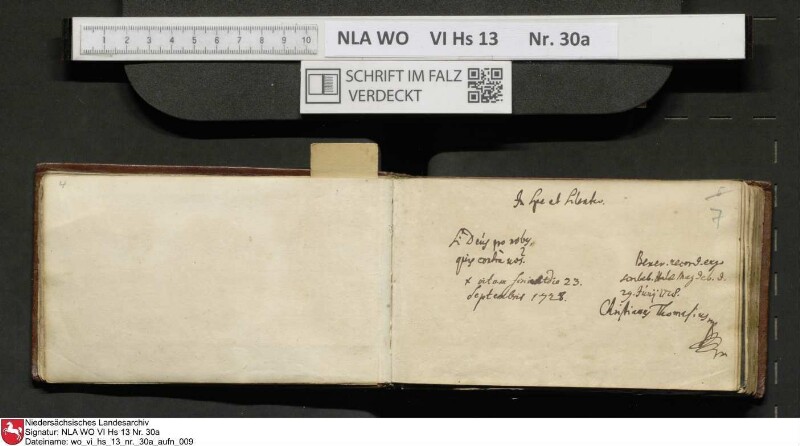 1 2 3 4 5 6 7 8 9 10
NLA WO VI Hs 13 Nr. 30a
SCHRIFT IM FALZ
VERDECKT
4
7
In spe et
Si Deus pro nobis
quis contra nos?
+ vitam finiit die 23.
Septembris 1728.
Benev. record. ergo
scribeb. Halae Magdeb. d.
29. Junij 1728.
Christianus Thomasius
Niedersächsisches Landesarchiv
Signatur: NLA WO VI Hs 13 Nr. 30a
Dateiname: wo_vi_hs_13_nr._30a_aufn_009